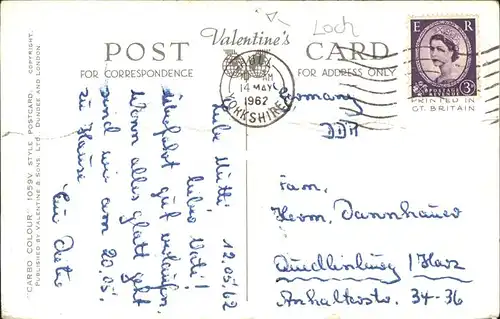 Loch
Valentine's
POST CARD
FOR CORRESPONDENCE
FOR ADDRESS ONLY
14 MAY
1962
YORKSHIRE
E R
3D
POSTAGE REVENUE
PRINTED IN
GT. BRITAIN
"CARBO COLOUR" 1059V STYLE POSTCARD. COPYRIGHT.
PUBLISHED BY VALENTINE & SONS LTD. DUNDEE AND LONDON
12.05.62
Liebe Mutti,
lieber Vati!
Überfahrt gut verlaufen.
Wenn alles glatt geht
sind wir am 20.05.
zu Hause
Euer Dieter
Germany
DDR
Fam.
Herm. Dannhauer
Quedlinburg / Harz
Anhaltostr. 34-36